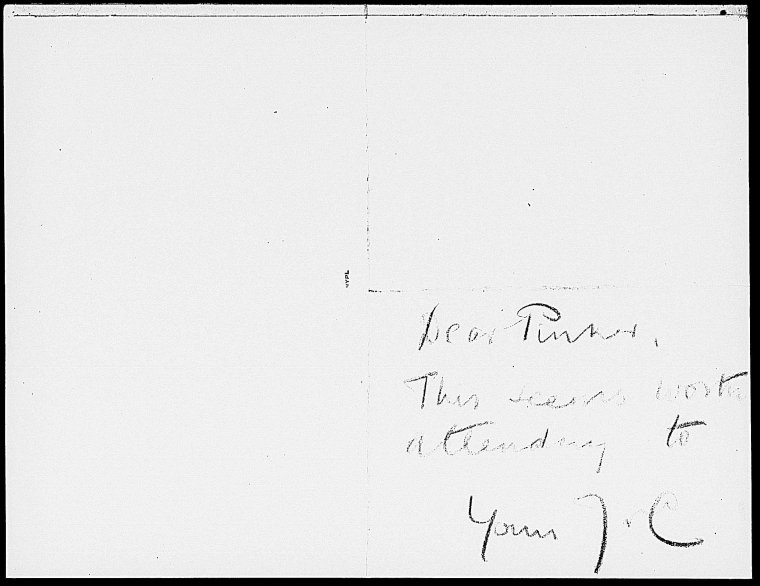 Dear Pinker,
This seems worth
attending to
Yours J. C